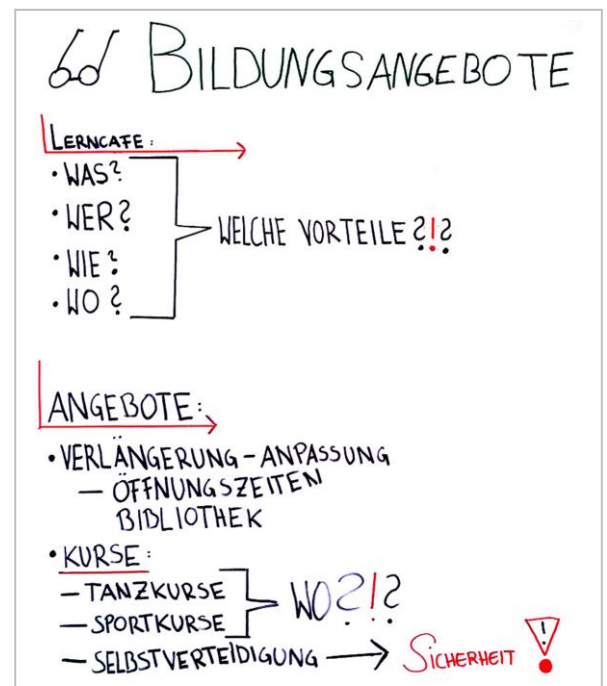 BILDUNGSANGEBOTE
LERNCAFE:
• WAS?
• WER?
• WIE?
• WO?
WELCHE VORTEILE ?!?
ANGEBOTE:
• VERLÄNGERUNG - ANPASSUNG
— ÖFFNUNGSZEITEN
BIBLIOTHEK
• KURSE:
— TANZKURSE
— SPORTKURSE
WO?!?
— SELBSTVERTEIDIGUNG → SICHERHEIT !